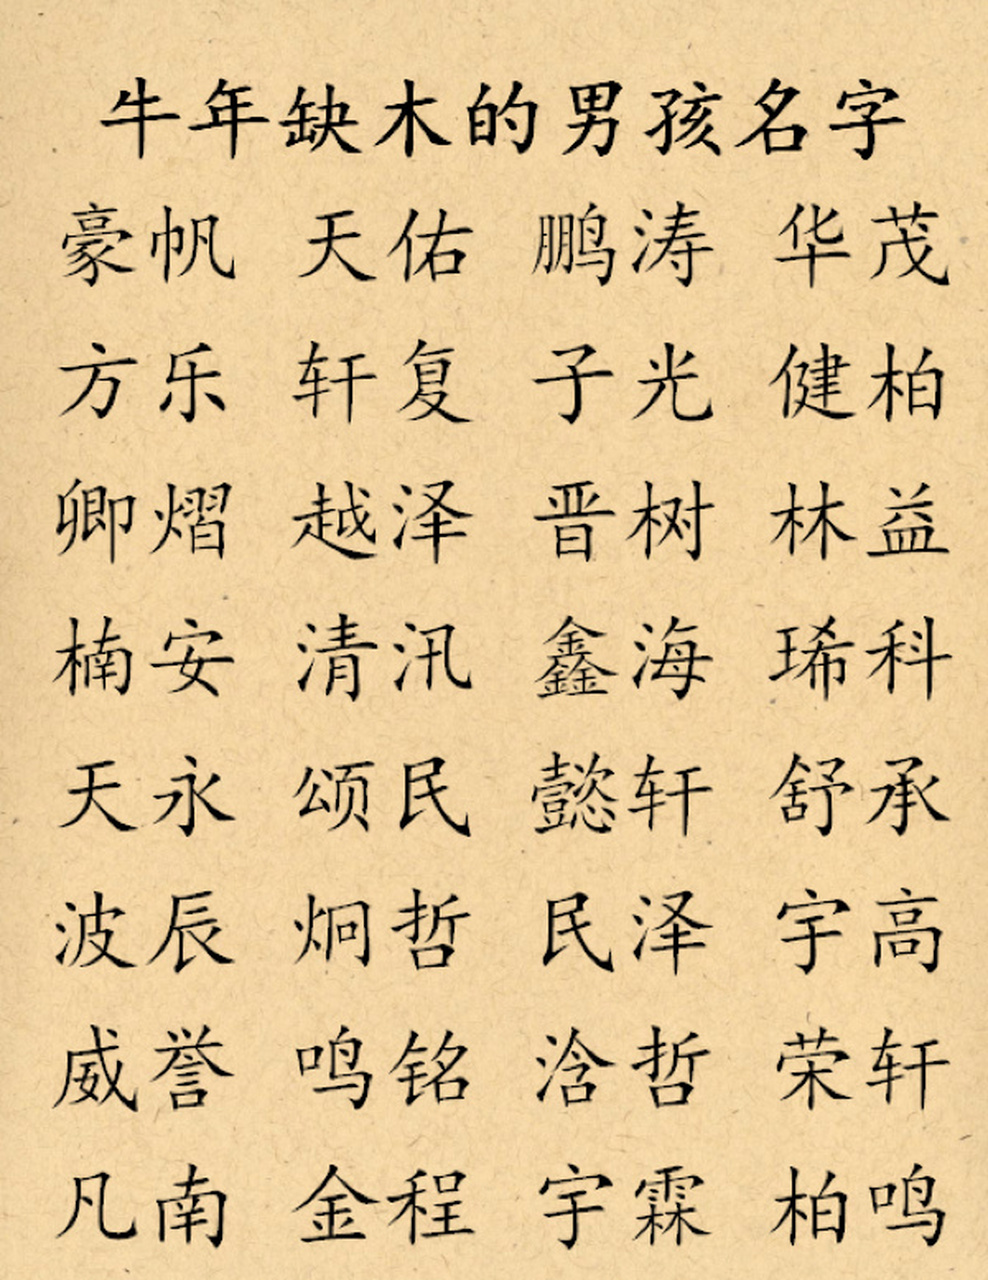 牛年缺木的男孩名字
豪帆 天佑 鹏涛 华茂
方乐 轩复 子光 健柏
卿熠 越泽 晋树 林益
楠安 清汛 鑫海 琋科
天永 颂民 懿轩 舒承
波辰 炯哲 民泽 宇高
威誉 鸣铭 浛哲 荣轩
凡南 金程 宇霖 柏鸣